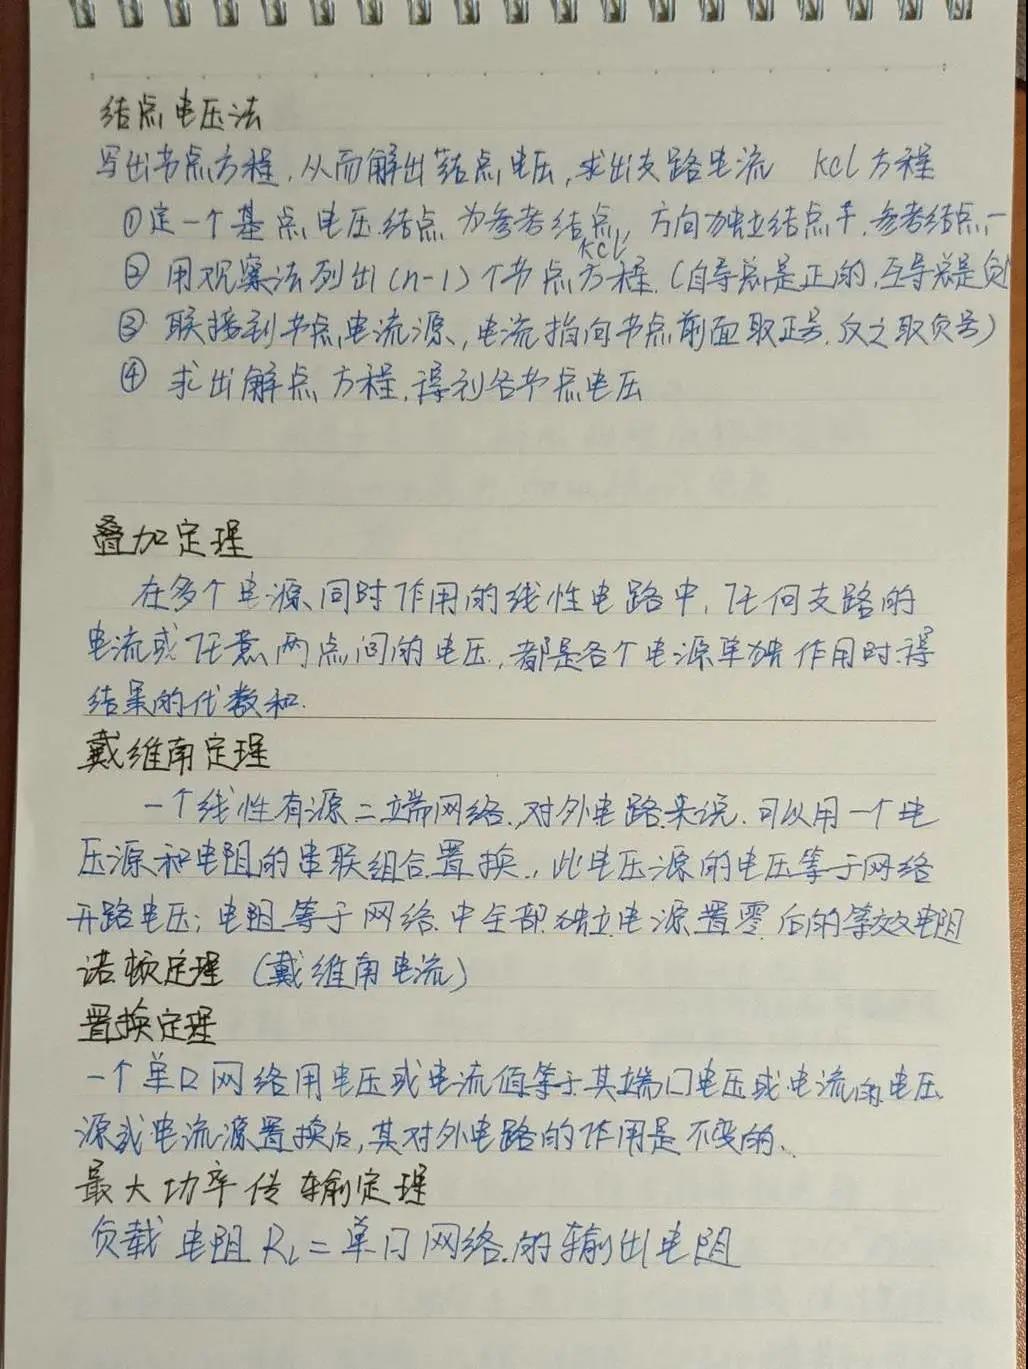 结点电压法
写出节点方程,从而解出结点电压,求出支路电流 KCL方程
①定一个基点电压结点为参考结点,方向独立结点干,参考结点一
KCL
②用观察法列出(n-1)个节点方程.(自导总是正的,互导总是负
③联接到节点电流源,电流指向节点前面取正号,反之取负号)
④求出解点方程,得到各节点电压
叠加定理
在多个电源同时作用的线性电路中,任何支路的
电流或任意两点间的电压,都是各个电源单独作用时得
结果的代数和.
戴维南定理
一个线性有源二端网络,对外电路来说.可以用一个电
压源和电阻的串联组合置换.,此电压源的电压等于网络
开路电压;电阻等于网络中全部独立电源置零后的等效电阻
诺顿定理(戴维南电流)
置换定理
一个单口网络用电压或电流值等于其端口电压或电流的电压
源或电流源置换后,其对外电路的作用是不变的.
最大功率传输定理
负载电阻RL=单口网络的输出电阻